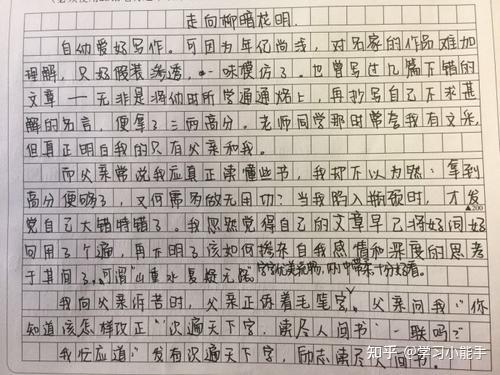 走向柳暗花明.
自幼爱好写作。可因为年纪尚浅，对名家的作品难加
理解，只好假装参透，一味模仿了。也曾写过几篇不错的
文章——无非是将幼时所学通通烙上，再抄写自己不求甚
解的名言，便拿了三两高分。老师同学那时常夸我有文采，
但真正明白我的只有父亲和我。
而父亲常说我应真正读懂些书，我却不以为然：拿到
高分便够了，又何需多做无用功？当我陷入瓶颈时，才发
▲200
觉自己大错特错了。我忽然觉得自己的文章早已将好词好
句用了个遍，再不明了该如何掺杂自我感情和深度的思考
于其间了。可谓“山重水复疑无路。
字字优美流畅，十分好看。
我向父亲诉苦时，父亲正练着毛笔字，父亲问我“你
知道该怎样改正“识遍天下字，读尽人间书”一联吗？”
我忙应道“发奋识遍天下字，励志读尽人间书。
知乎 @学习小能手